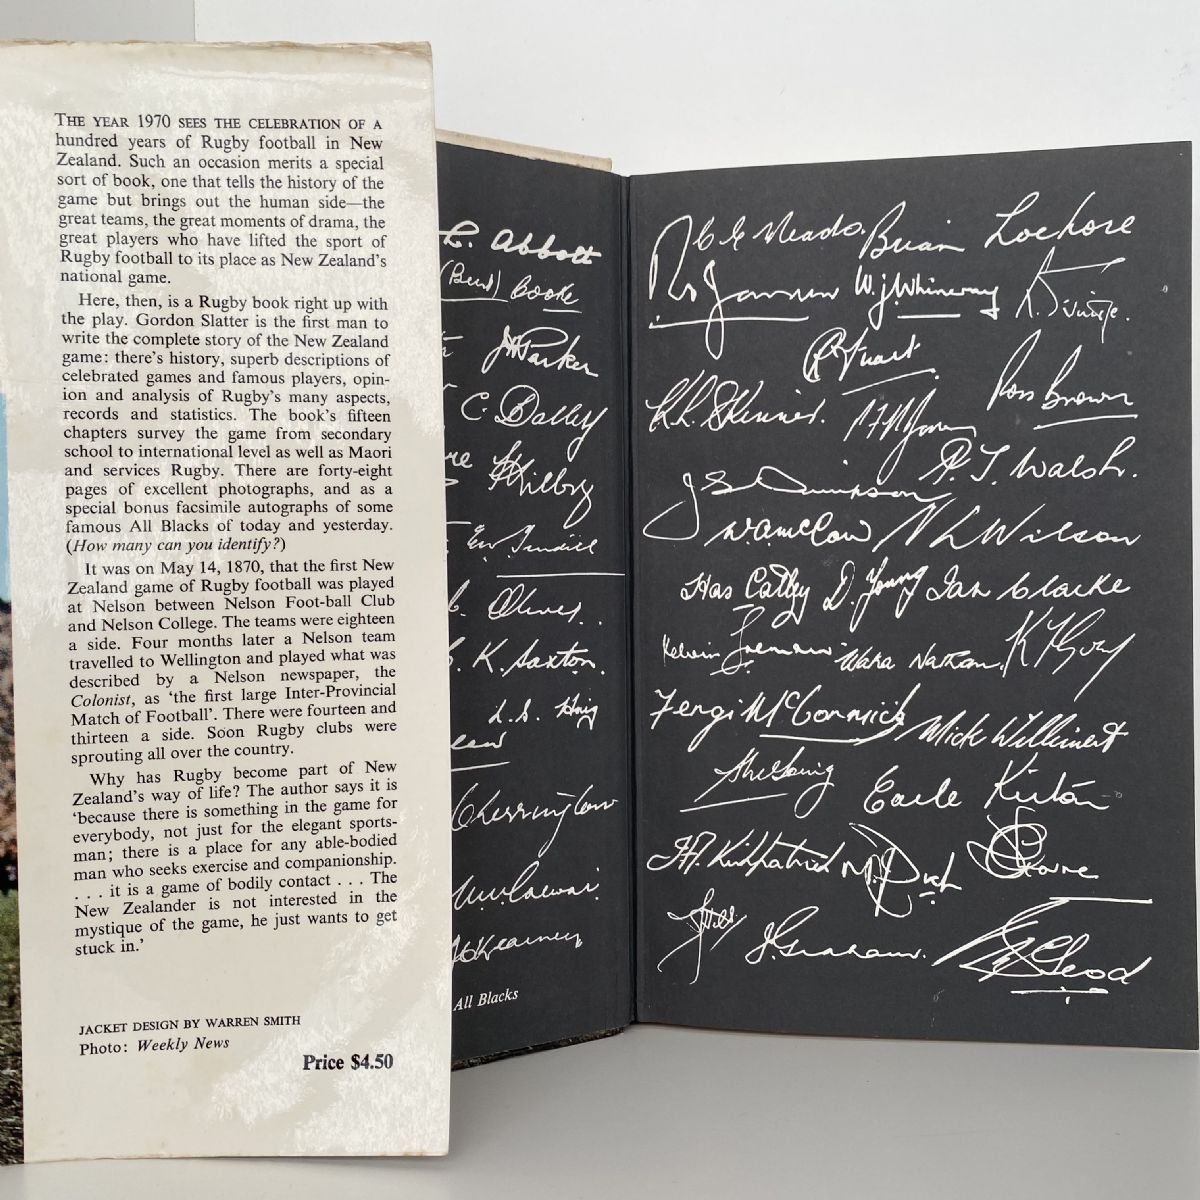 THE YEAR 1970 SEES THE CELEBRATION OF A
hundred years of Rugby football in New
Zealand. Such an occasion merits a special
sort of book, one that tells the history of the
game but brings out the human side—the
great teams, the great moments of drama, the
great players who have lifted the sport of
Rugby football to its place as New Zealand's
national game.
Here, then, is a Rugby book right up with
the play. Gordon Slatter is the first man to
write the complete story of the New Zealand
game: there's history, superb descriptions of
celebrated games and famous players, opin-
ion and analysis of Rugby's many aspects,
records and statistics. The book's fifteen
chapters survey the game from secondary
school to international level as well as Maori
and services Rugby. There are forty-eight
pages of excellent photographs, and as a
special bonus facsimile autographs of some
famous All Blacks of today and yesterday.
(How many can you identify?)
It was on May 14, 1870, that the first New
Zealand game of Rugby football was played
at Nelson between Nelson Foot-ball Club
and Nelson College. The teams were eighteen
a side. Four months later a Nelson team
travelled to Wellington and played what was
described by a Nelson newspaper, the
Colonist, as 'the first large Inter-Provincial
Match of Football'. There were fourteen and
thirteen a side. Soon Rugby clubs were
sprouting all over the country.
Why has Rugby become part of New
Zealand's way of life? The author says it is
'because there is something in the game for
everybody, not just for the elegant sports-
man; there is a place for any able-bodied
man who seeks exercise and companionship.
. . . it is a game of bodily contact . . . The
New Zealander is not interested in the
mystique of the game, he just wants to get
stuck in.'
JACKET DESIGN BY WARREN SMITH
Photo: Weekly News
Price $4.50
L. Abbott
Cooke
Parker
C. Badeley
Kilby
Oliver
C. K. Saxton.
L.S. Haig
Cherrington
Kearney
All Blacks
C E Meads. Brian Lochore
W.J. Whineray
R Stuart
K.L. Skinner. Ross Brown
P.T. Walsh.
W.A. McCaw N L Wilson
Has Catley D. Young Ian Clarke
Kelvin Tremain Waka Nathan. K F Gray
Fergi McCormick Mick Williment
Earle Kirton
I.A. Kirkpatrick M. Dick
J. Graham. McLeod